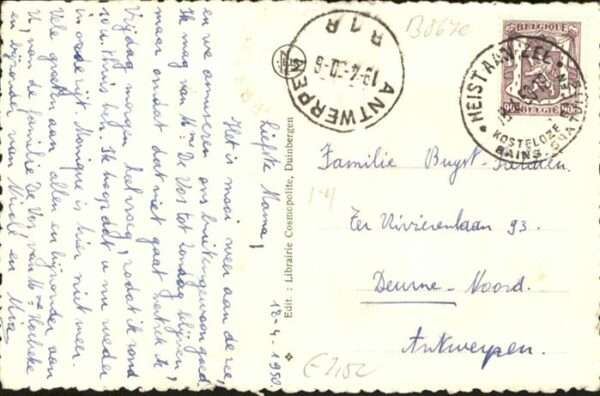 B8670
BELGIQUE
BELGIE
90 90
HEIST AAN ZEE
KOSTELOZE
BAINS GRATUITS
ANTWERPEN
R1R
Edit. : Librairie Cosmopolite, Duinbergen
12-4-1950.
Liefste Mama,
Het is mooi weer aan de zee,
en we amuseren ons buitengewoon goed,
Ik mag van de Vos tot Zondag blijven,
maar omdat dat niet gaat vertrek ik
Vrijdag morgen heel vroeg, zodat ik rond
10 u thuis ben. Ik hoop dat u nu weder
in orde zijt. Monique is hier niet meer.
Vele groeten aan allen en bijzonder aan
U, van de familie De Vos, van
en bijzonder van en Mia
Familie Buyst-
Ter Rivierenlaan 93.
Deurne-Noord.
Antwerpen.
1-4